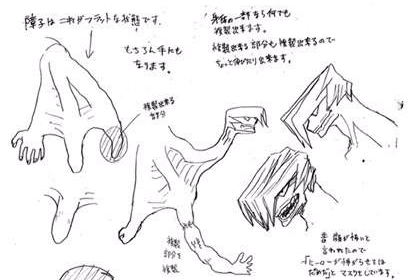 障子は これがフラットな状態です。
もちろん手にも
なります。
複製出来る
部分
身体の一部なら何でも
複製出来ます。
複製出来る部分も複製出来るので
ちょっと伸びたり出来ます。
複製
部分を
複製
昔 顔が怖いと
言われたので
「ヒーローが怖がらせては
だめだ」とマスクをしています。